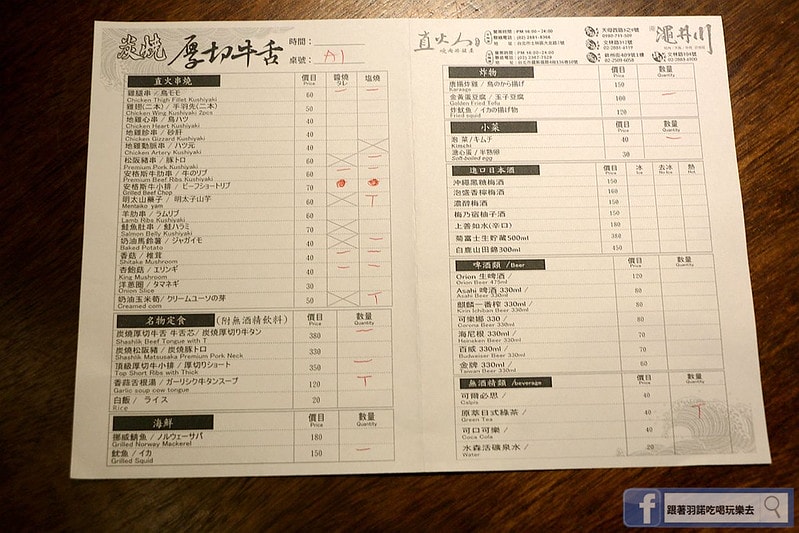 炭燒 厚切牛舌
時間:
桌號: A1
直火串燒 價目 Price 醬燒 タレ 塩燒
雞腿串 / 鳥モモ 60
Chicken Thigh Fillet Kushiyaki
雞翅(二本) / 手羽先(二本) 50
Chicken Wing Kushiyaki 2pcs
地雞心串 / 鳥ハツ 40
Chicken Heart Kushiyaki
地雞胗串 / 砂肝 40
Chicken Gizzard Kushiyaki
地雞動脈串 / ハツ元 40
Chicken Artery Kushiyaki
松阪豬串 / 豚トロ 60
Premium Pork Kushiyaki
安格斯牛肋串 / 牛のリブ 60
Premium Beef Ribs Kushiyaki
安格斯牛小排 / ビーフショートリブ 70
Grilled Beef Chop
明太山藥子 / 明太子山芋 60 T
Mentaiko yam
羊肋串 / ラムリブ 60
Lamb Ribs Kushiyaki
鮭魚肚串 / 鮭ハラミ 70
Salmon Belly Kushiyaki
奶油馬鈴薯 / ジャガイモ 40
Baked Potato
香菇 / 椎茸 40
Shitake Mushroom
杏飽菇 / エリンギ 40
King Mushroom
洋蔥圈 / タマネギ 30
Onion Slice
奶油玉米筍 / クリームユーソの芽 50 T
Creamed corn
名物定食 (附無酒精飲料) 價目 Price 數量 Quantity
炭燒厚切牛舌 牛舌芯 / 炭燒厚切り牛タン 380
Shashlik Beef Tongue with T
炭燒松阪豬 / 炭燒豚トロ 330
Shashlik Matsusaka Premium Pork Neck
頂級厚切牛小排 / 厚切りショート 350
Top Short Ribs with Thick
香蒜舌根湯 / ガーリシク牛タンスープ 120 T
Garlic soup cow tongue
白飯 / ライス 20
Rice
海鮮 價目 Price 數量 Quantity
挪威鯖魚 / ノルウェーサバ 180
Grilled Norway Mackerel
魷魚 / イカ 150
Grilled Squid
直火人
營業時間: PM 18:00~24:00
營業時間: PM 18:00~24:00
天母西路
文林路
澠井川
炸物 價目 Price 數量 Quantity
唐揚炸雞 / 鳥のから揚げ 150
Karaage
金黃蛋豆腐 / 玉子豆腐 100
Golden Fried Tofu
炸魷魚 / イカの揚げ物 120
Fried squid
小菜 價目 Price 數量 Quantity
泡菜 / キムチ 40
Kimchi
溏心蛋 / 半熟卵 30
Soft-boiled egg
進口日本酒 價目 Price 冰 Ice 去冰 No Ice 熱 Hot
沖繩黑糖梅酒 150
泡盛香檸梅酒 160
濃醇梅酒 150
梅乃宿柚子酒 150
上善如水(辛口) 180
菊富士生貯藏500ml 380
白鹿山田錦300ml 450
啤酒類 /Beer 價目 Price 數量 Quantity
Orion 生啤酒 120
Orion Beer 475ml
Asahi 啤酒 330ml / 80
Asahi Beer 330ml
麒麟一番榨 330ml / 80
Kirin Ichiban Beer 330ml
可樂娜 330 / 80
Corona Beer 330ml
海尼根 330ml / 70
Heineken Beer 330ml
百威 330ml / 70
Budwaiser Beer 330ml
金牌 330ml / 60
Taiwan Beer 330ml
無酒精類 /beverage 價目 Price 數量 Quantity
可爾必思 / 40
Calpis
原萃日式綠茶 / 40 T
Green Tea
可口可樂 / 40
Coca Cola
水森活礦泉水 / 20
Water
跟著羽諾吃喝玩樂去